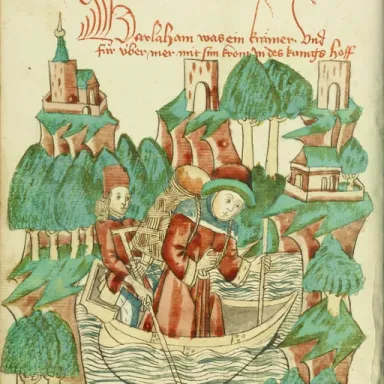 Barlaham was ein kramer . Vnd
fůr vber mer mit sim krom jn des kungs hoff